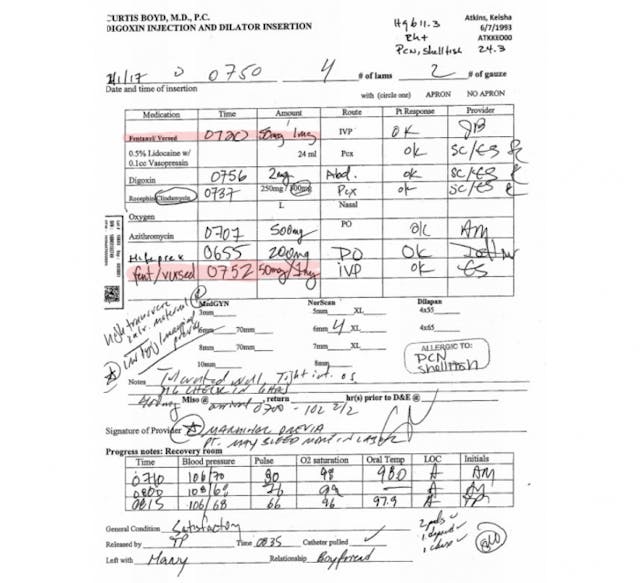 CURTIS BOYD, M.D., P.C.
DIGOXIN INJECTION AND DILATOR INSERTION
Hgb 11.3
Rh+
PCN, Shellfish 24.3
Atkins, Keisha
6/7/1993
ATKKE000
0750 4 # of lams 2 # of gauze
Date and time of insertion
with (circle one) APRON NO APRON
Medication Time Amount Route Pt Response Provider
Fentanyl/ Versed 0720 50mg 1mg IVP OK
0.5% Lidocaine w/ 24 ml Pcx ok SC/ES
0.1cc Vasopressin
Digoxin 0756 2mg Abd. ok SC/ES
Rocephin Clindamycin 0737 250mg / 300mg Pcx ok SC/ES
L Nasal
Oxygen
Azithromycin 0707 500mg PO ok AM
Mifeprex 0655 200mg PO OK
fent/versed 0752 50mg/1mg IVP ok ES
MedGYN NorScan Dilapan
3mm 5mm XL 4x55
6mm 70mm 6mm 4 XL 4x65
8mm 70mm 7mm XL
10mm 8mm
ALLERGIC TO:
PCN
Shellfish
Notes Tolerated well, Tight int. os
CHECK IN 6 HRS
Miso @ arrival, return hr(s) prior to D&E @
0700 - 102 2/2
Signature of Provider MARGINAL PREVIA
PT. MAY BLEED MORE IN
Progress notes: Recovery room
Time Blood pressure Pulse O2 saturation Oral Temp LOC Initials
0710 106/70 80 98 98.0 A AM
0800 108/68 76 99 A AM
0815 106/68 66 96 97.9 A TP
General Condition Satisfactory
Released by TP Time 0835 Catheter pulled ✓
Left with Many Relationship Boyfriend